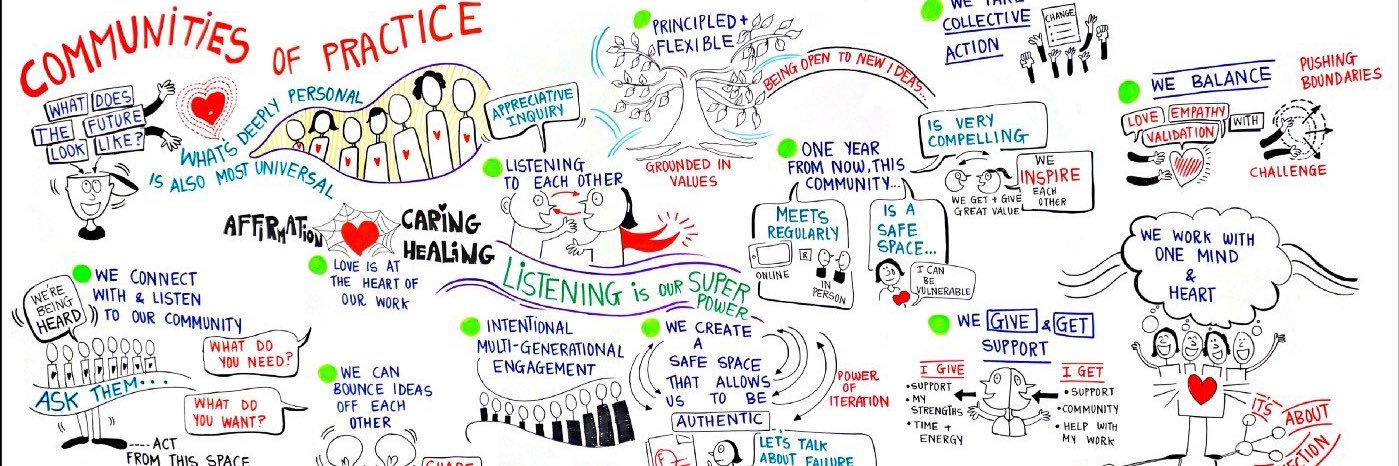 COMMUNITIES OF PRACTICE
WHAT DOES
THE FUTURE
LOOK LIKE?
WHAT'S DEEPLY PERSONAL
IS ALSO MOST UNIVERSAL
APPRECIATIVE
INQUIRY
LISTENING
TO EACH OTHER
AFFIRMATION
CARING
HEALING
LOVE IS AT
THE HEART OF
OUR WORK
LISTENING IS OUR SUPER
POWER
PRINCIPLED +
FLEXIBLE
GROUNDED IN
VALUES
BEING OPEN TO NEW IDEAS...
WE TAKE
COLLECTIVE
ACTION
CHANGE
ONE YEAR
FROM NOW, THIS
COMMUNITY...
MEETS
REGULARLY
ONLINE
&
IN
PERSON
IS A
SAFE
SPACE...
I CAN
BE
VULNERABLE
IS VERY
COMPELLING
WE
INSPIRE
EACH
OTHER
WE GET + GIVE
GREAT VALUE
WE BALANCE
LOVE EMPATHY
VALIDATION
WITH
PUSHING
BOUNDARIES
CHALLENGE
WE CONNECT
WITH & LISTEN
TO OUR COMMUNITY
WE'RE
BEING
HEARD
ASK THEM...
WHAT DO
YOU NEED?
WHAT DO
YOU WANT?
ACT
FROM THIS SPACE
WE CAN
BOUNCE IDEAS
OFF EACH
OTHER
INTENTIONAL
MULTI-GENERATIONAL
ENGAGEMENT
WE CREATE
A
SAFE SPACE
THAT ALLOWS
US TO BE
AUTHENTIC
POWER
OF
ITERATION
LET'S TALK
ABOUT FAILURE
WE GIVE & GET
SUPPORT
I GIVE
• SUPPORT
• MY
STRENGTHS
• TIME +
ENERGY
I GET
• SUPPORT
• COMMUNITY
• HELP WITH
MY WORK
WE WORK WITH
ONE MIND
&
HEART
IT'S ABOUT